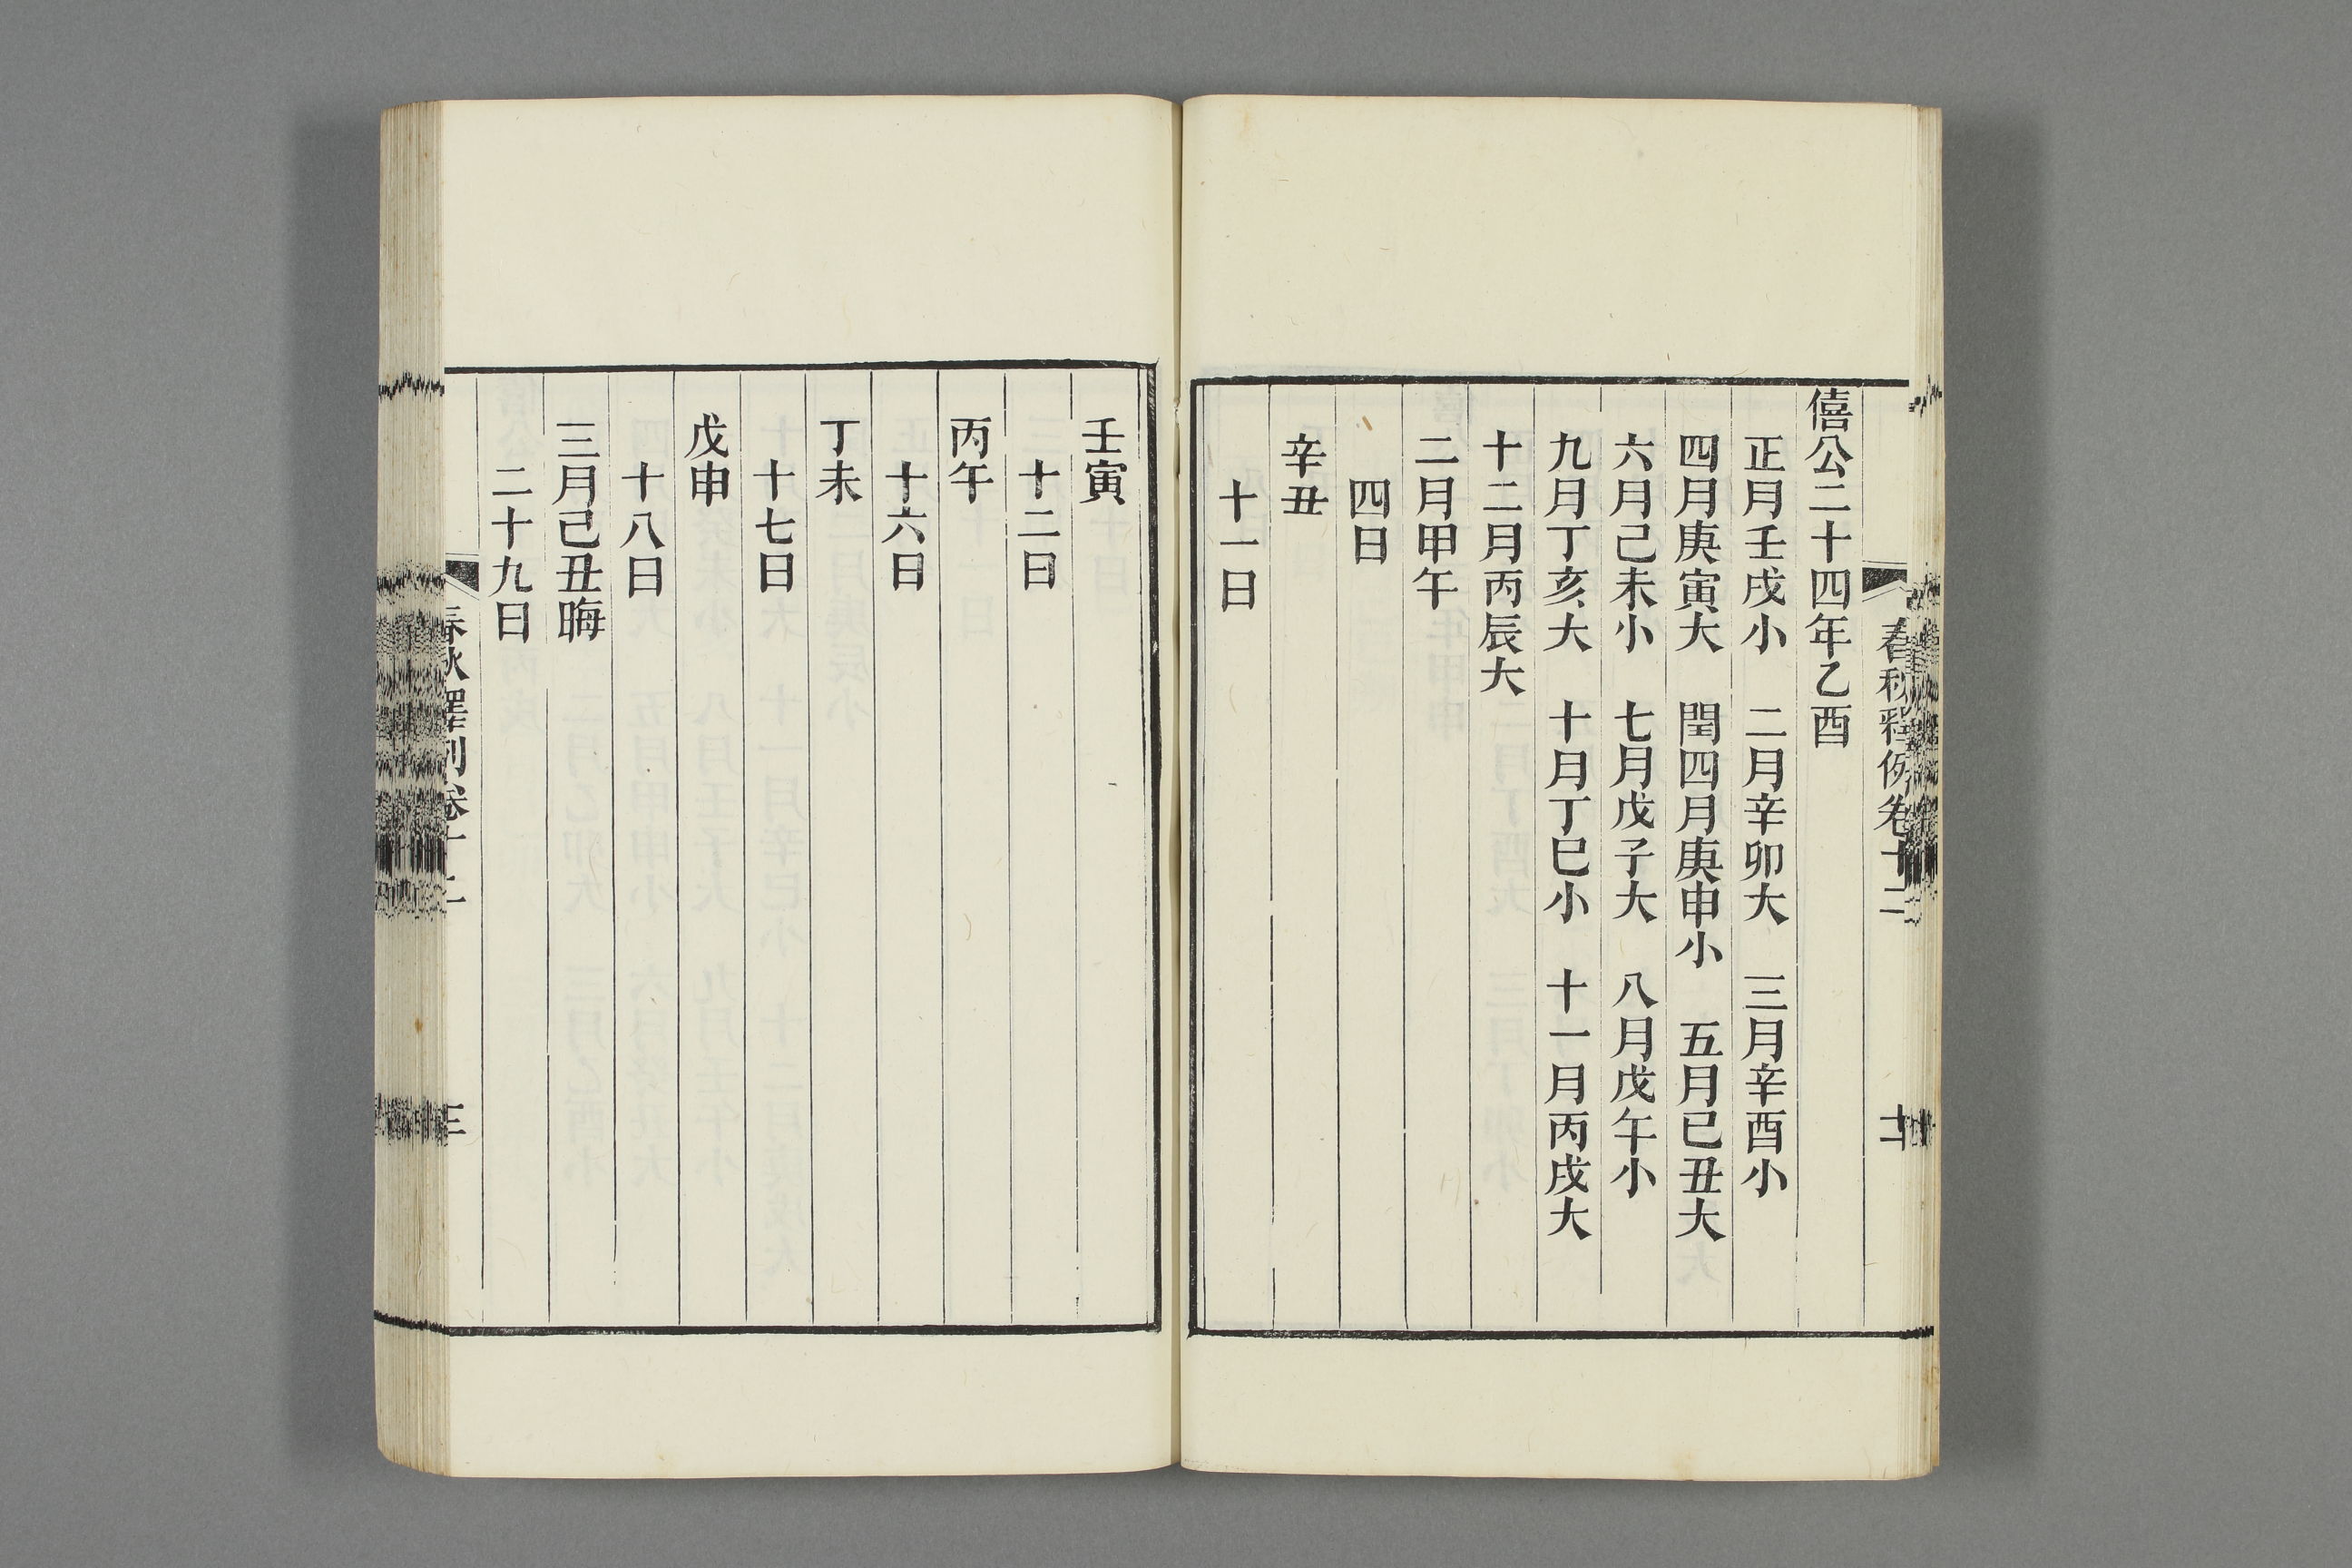 春秋釋例卷十二
僖公二十四年乙酉
正月壬戌小　二月辛卯大　三月辛酉小
四月庚寅大　閏四月庚申小　五月己丑大
六月己未小　七月戊子大　八月戊午小
九月丁亥大　十月丁巳小　十一月丙戌大
十二月丙辰大
二月甲午
四日
辛丑
十一日
壬寅
十二日
丙午
十六日
丁未
十七日
戊申
十八日
三月己丑晦
二十九日
春秋釋例卷十二